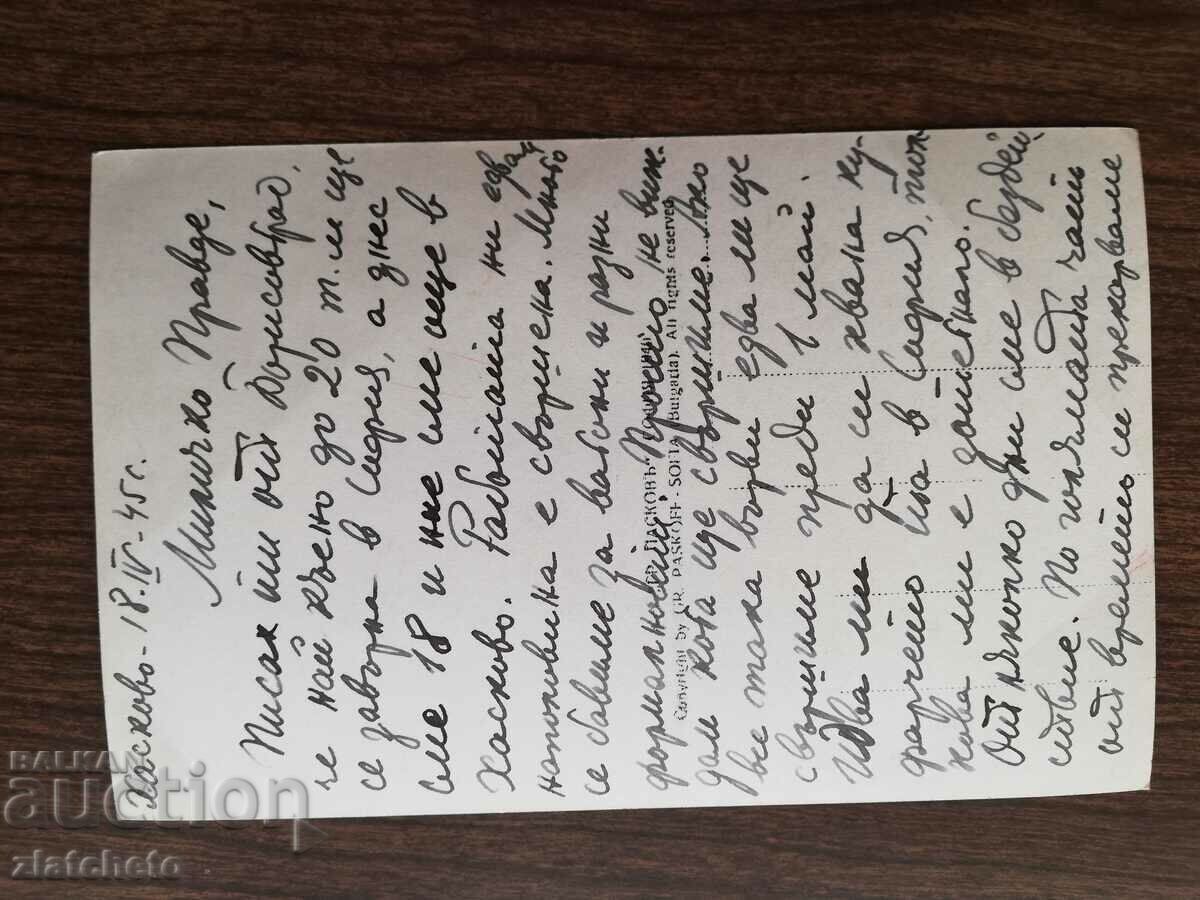 Хасково - 18.IV.45 г.
Миличко Правде,
Писах ти отъ Борисовград,
че най късно до 20 т.м. ще
се завърна в София, а днес
сме 18 и ние сме още в
Хасково. Работата ни едва
наполовина е свършена. Много
се бавиме за вагони и разни
формалности. Просто не виж-
дам кога ще свършиме. Ако
все така върви едва ли ще
свършиме преди 1 май.
Идва ми да си хвана ку-
фарчето и в София,
кова ми е
Отъ няколко дни сме в бездей-
ствие. По голямата част
отъ времето си прекарваме
ГР. ПАСКОВЪ
Copyright by GR. PASKOFF - SOFIA (Bulgaria). All rights reserved
BALKAN
auction
zlatcheto